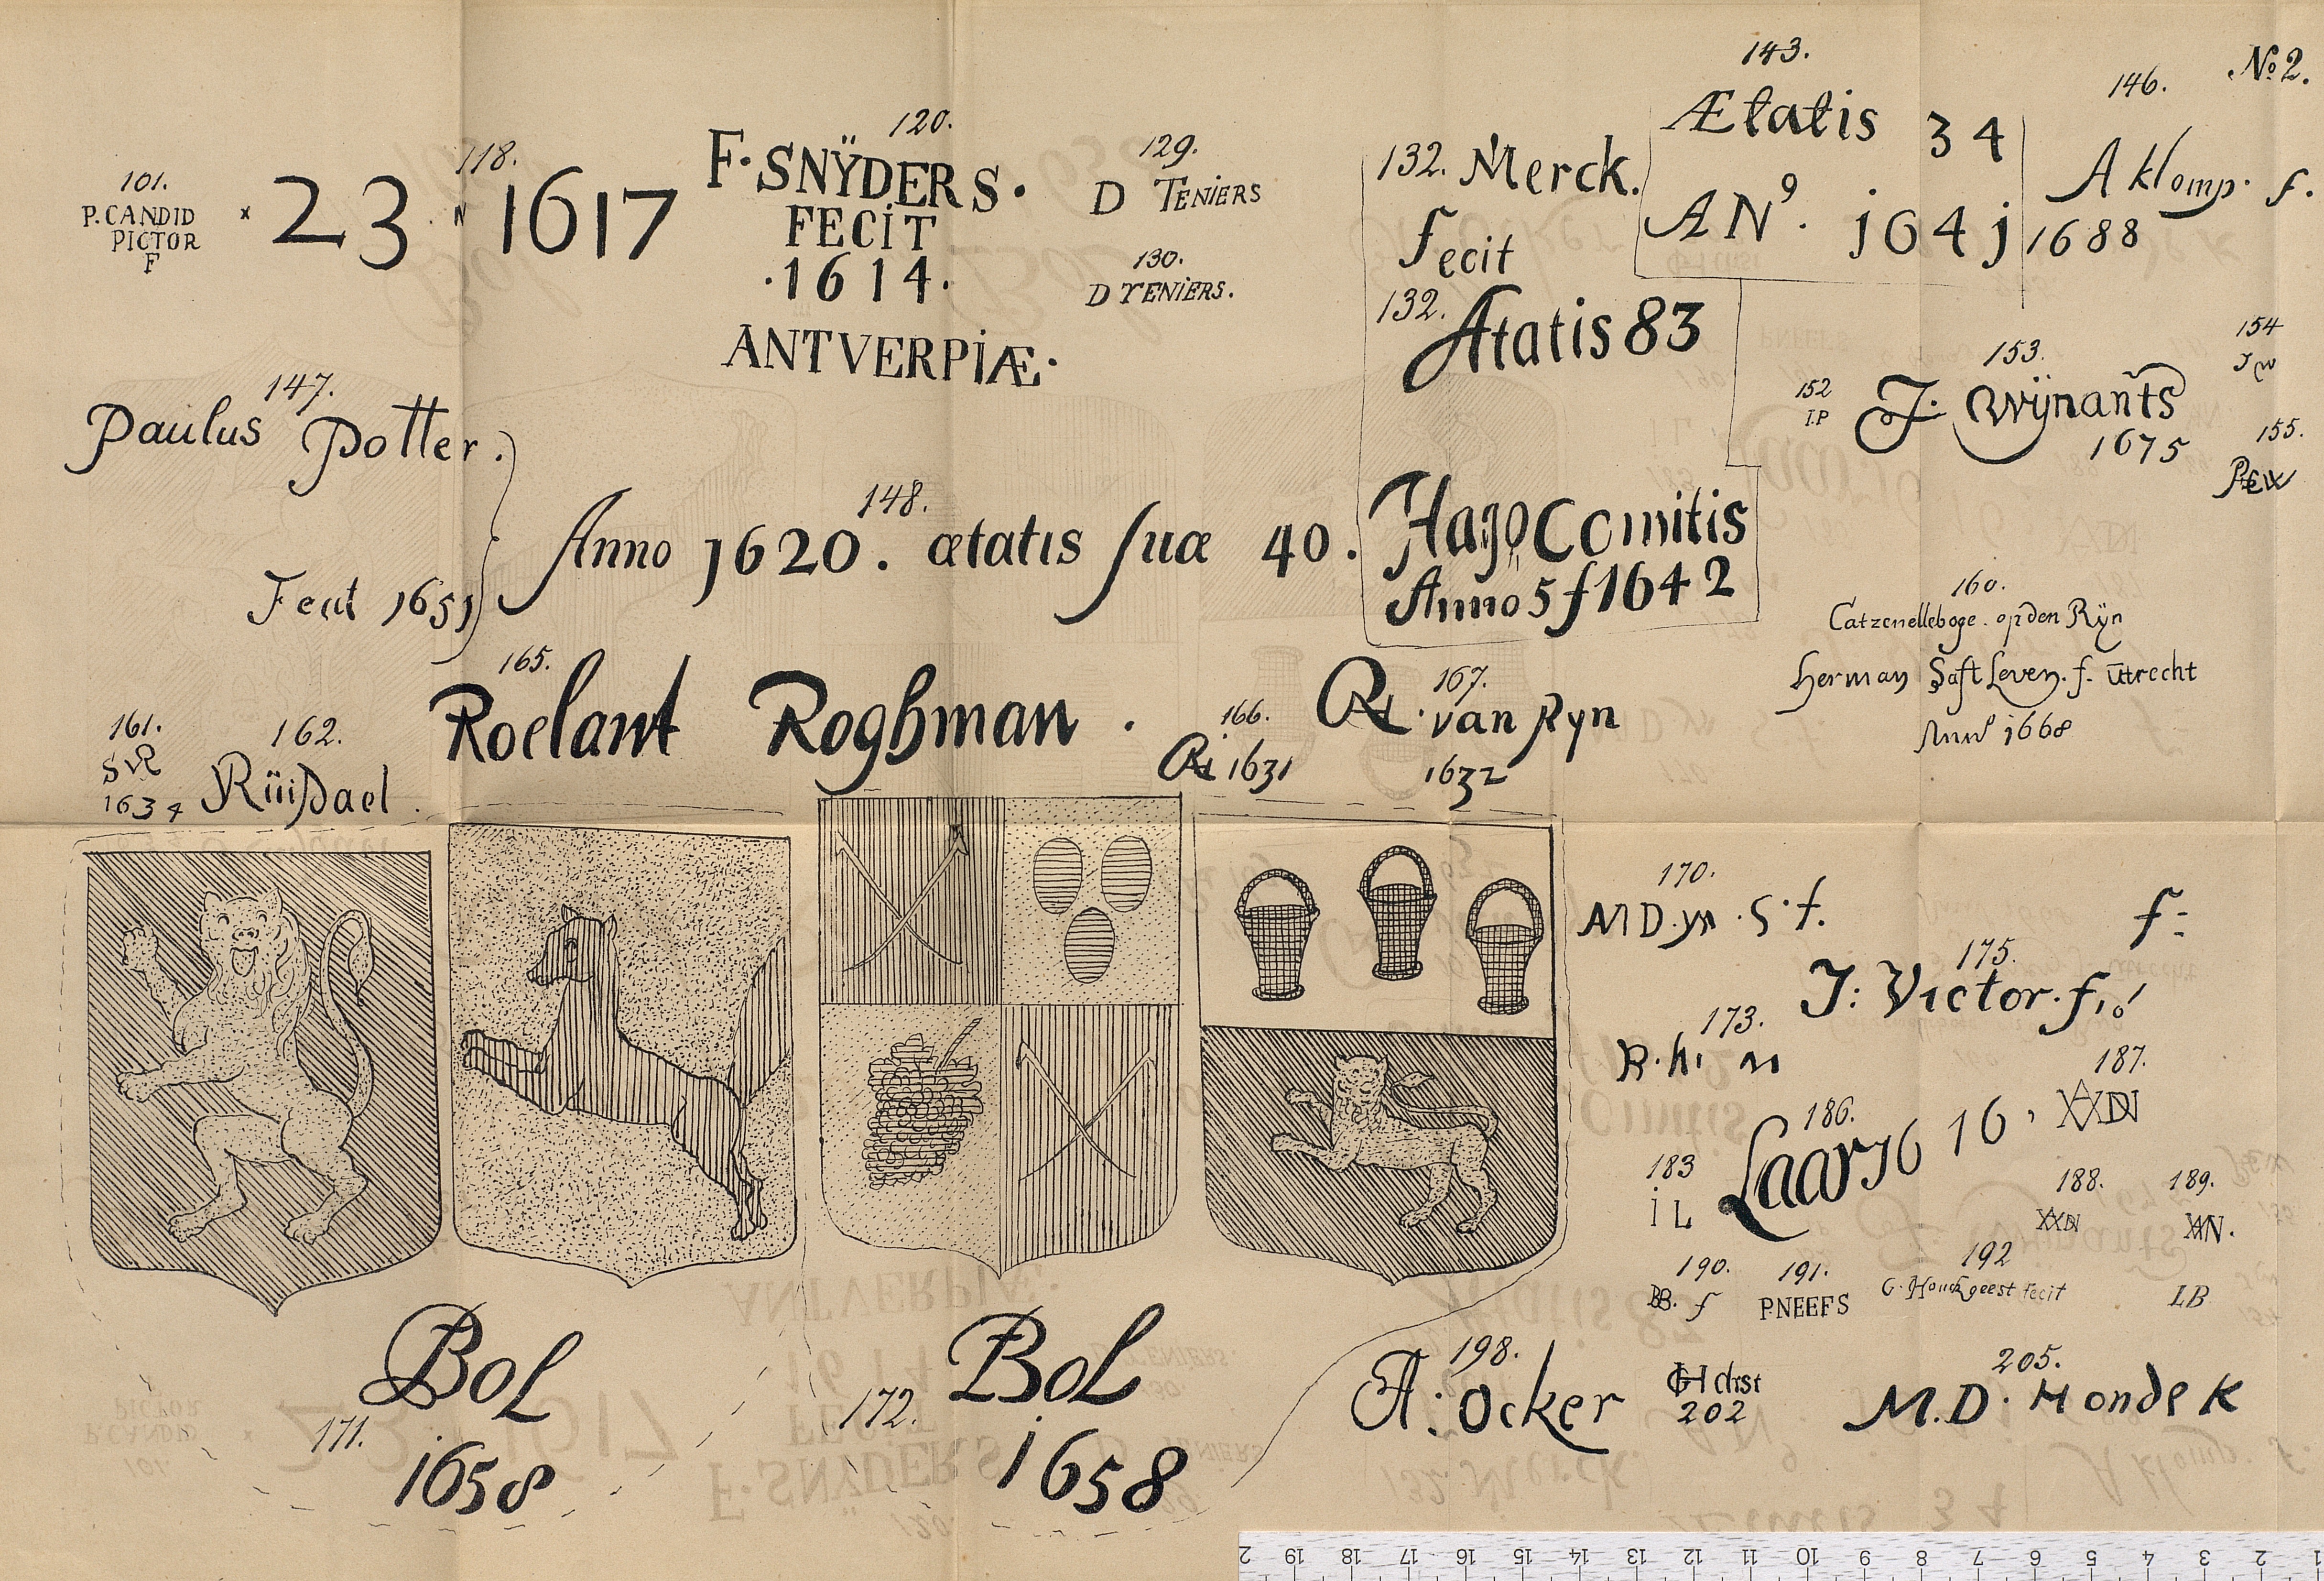 No 2.
101.
P. CANDID
PICTOR
F
118.
23 . N 1617
120.
F. SNŸDERS.
FECiT
.1614.
ANTVERPiÆ.
129.
D TENiERS
130.
D TENiERS.
132. Merck.
fecit
132.
Ætatis 83
Hago Comitis
Anno 5 f 1642
143.
Ætatis 34
ANº. j64j
146.
A klomp. f.
1688
147.
Paulus Potter.
Fecit 1651
148.
Anno 1620. ætatis suæ 40.
152
I.P
153.
J. Wÿnants
1675
154
JW
155.
160.
Catzenelleboge. op den Rÿn
Herman Saft Leven. f. Utrecht
Anno 1668
161.
SVR
1634
162.
Rüisdael
165.
Roelant Roghman.
166.
RL 1631
167.
RL. van Ryn
1632
170.
M D.yn .S.f.
f:
171.
Bol
1658
172.
BoL
1658
173.
R. hi n
175.
J: Victor. f,o!
183
i L
186.
Laar 16 16
187.
188.
189.
190.
BB. f
191.
P.NEEFS
192
G. Houckgeest fecit
LB
198.
A: Ocker
GH drst
202
205.
M.D. HondeK
2 19 18 17 16 15 14 13 12 11 10 9 8 7 6 5 4 3 2 1